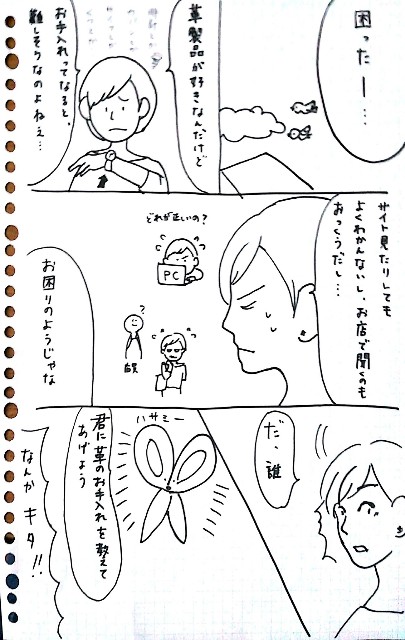 困ったー…
革製品が好きなんだけど
お手入れってなると、
難しそうなのよねぇ…
サイト見たりしても
よくわかんないし、お店で聞くのも
おっくうだし…
どれが正しいの？
PC
?
店員
お困りのようじゃな
だ、誰
ハサミー
君に革のお手入れを教えて
あげよう
なんか キタ!!